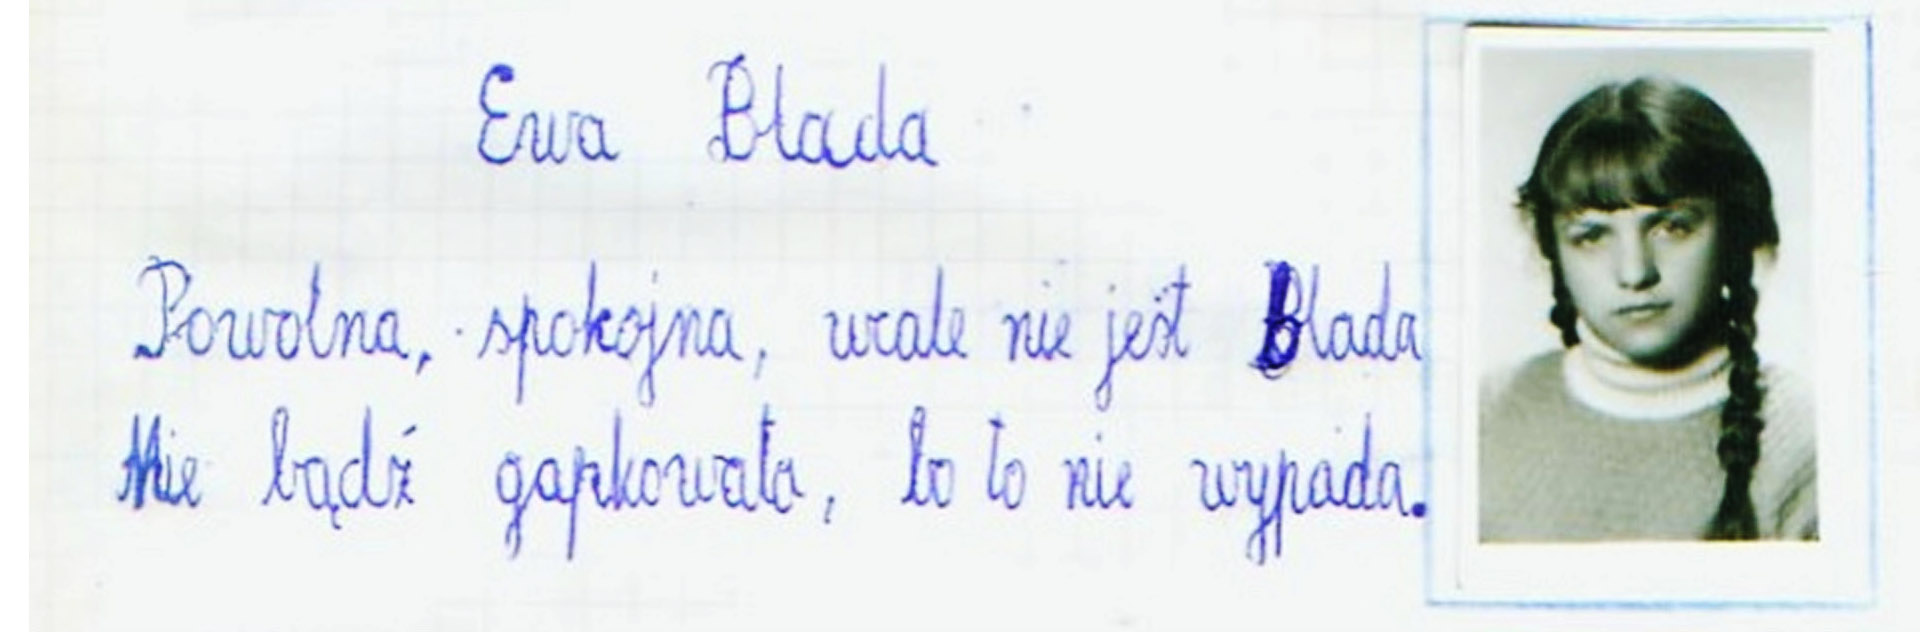 Ewa Blada
Powolna, spokojna, wcale nie jest Blada
Nie bądź gapkowata, bo to nie wypada.